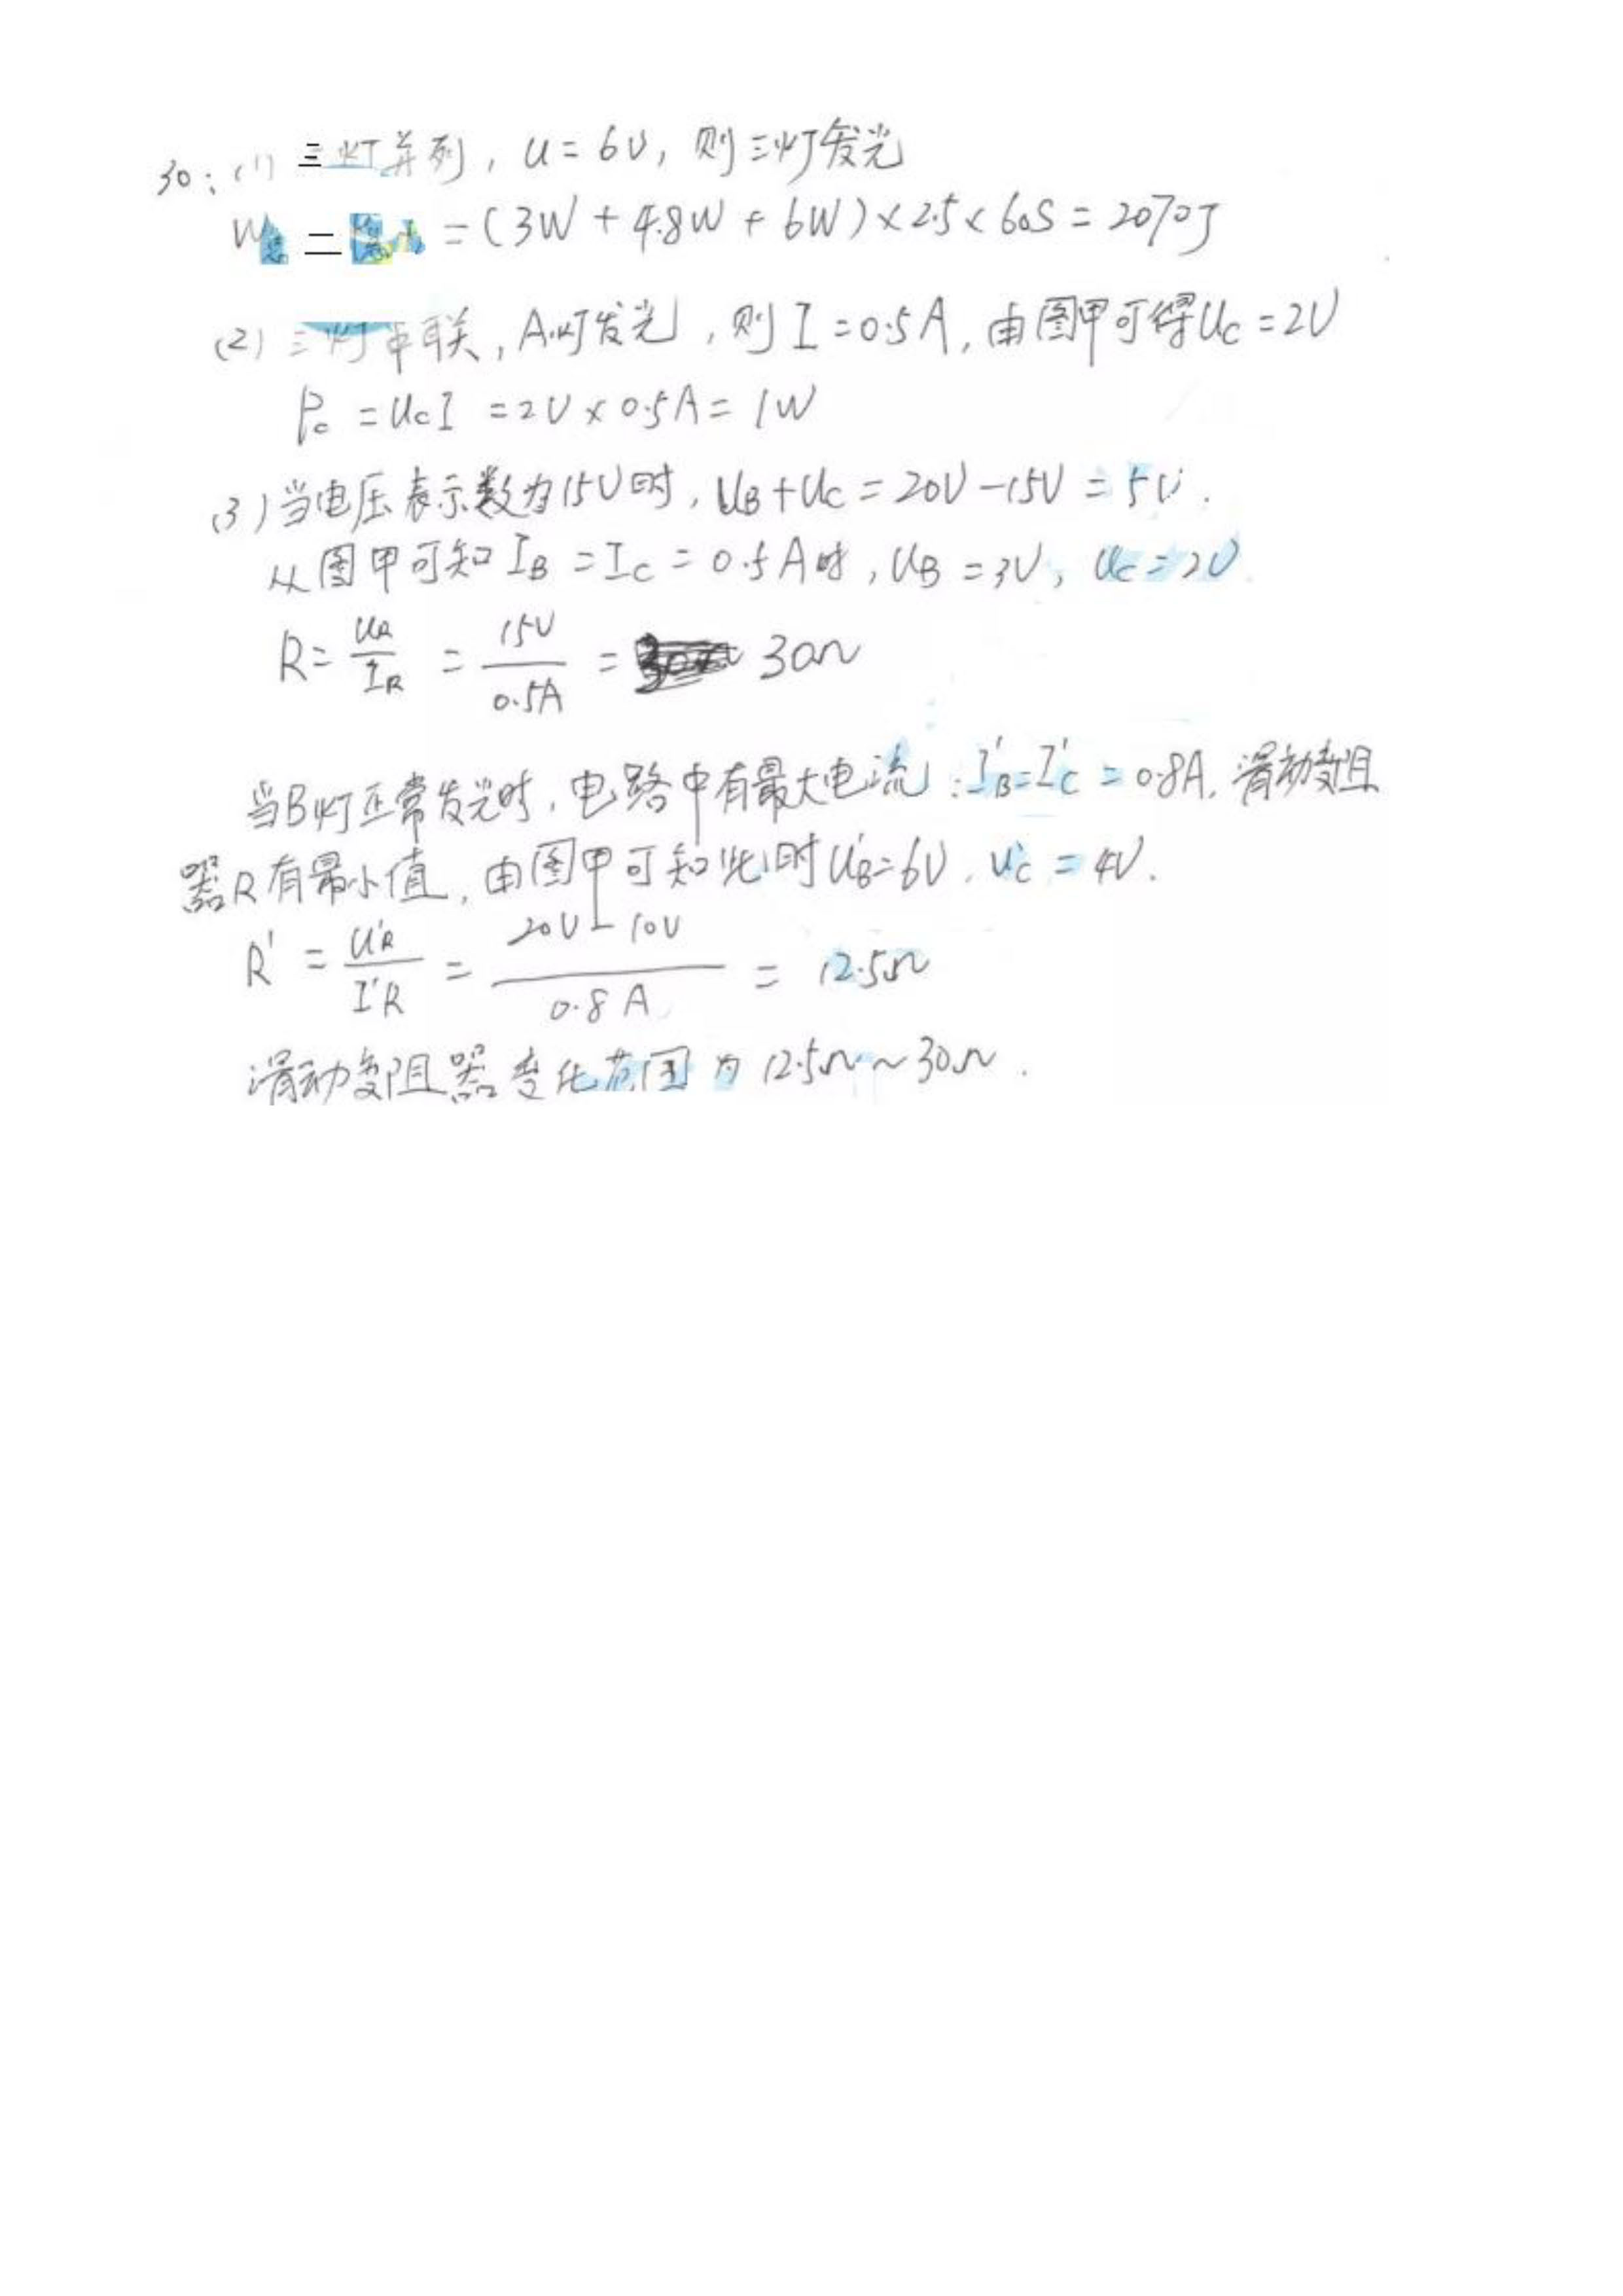 30：(1) 三灯并列，U＝6V，则三灯发光
W总 ＝ ＝(3W＋4.8W＋6W)×2.5×60S＝2070J
(2) 三灯串联，A灯发光，则I＝0.5A，由图甲可得Uc＝2V
Pc＝UcI＝2V×0.5A＝1W
(3)当电压表示数为15V时，UB＋Uc＝20V－15V＝5V．
从图甲可知IB＝Ic＝0.5A时，UB＝3V，Uc＝2V
R＝UR/IR＝15V/0.5A＝30Ω
当B灯正常发光时，电路中有最大电流：I'B＝I'C＝0.8A．滑动变阻
器R有最小值，由图甲可知此时U'B＝6V．U'c＝4V．
R'＝U'R/I'R＝20V－10V/0.8A＝12.5Ω
滑动变阻器变化范围为12.5Ω～30Ω．